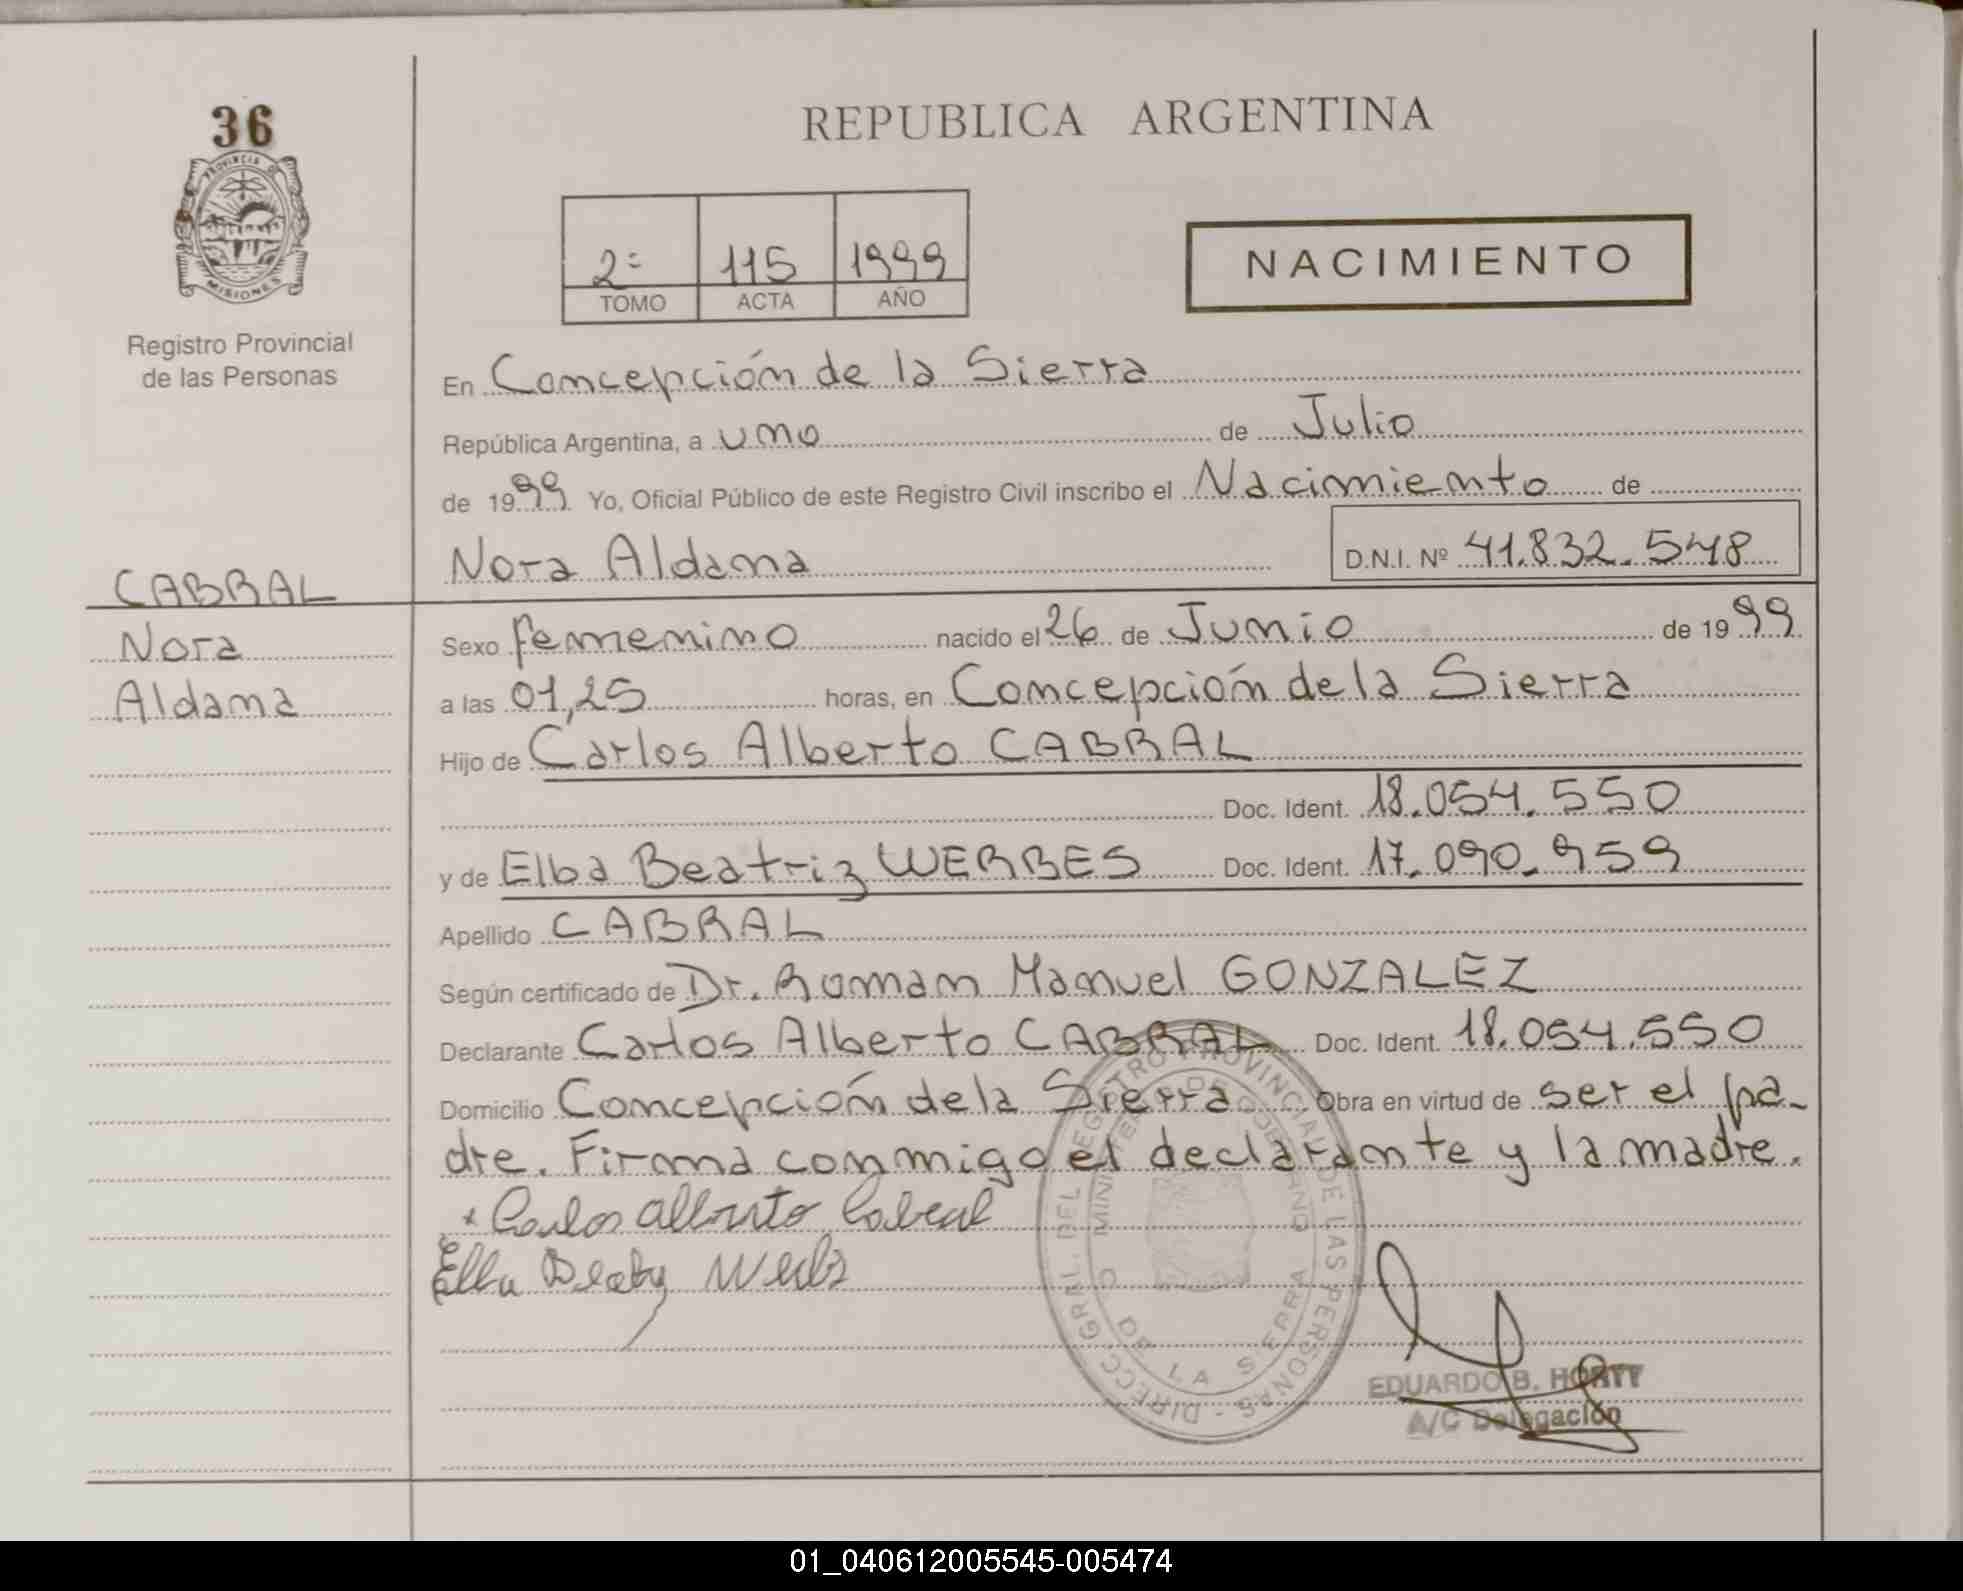 36
PROVINCIA DE
MISIONES
Registro Provincial
de las Personas
CABRAL
Nora
Aldama
REPUBLICA ARGENTINA
2º 115 1999
TOMO ACTA AÑO
NACIMIENTO
En Concepción de la Sierra
República Argentina, a uno de Julio
de 1999 Yo, Oficial Público de este Registro Civil inscribo el Nacimiento de
Nora Aldama D.N.I. Nº 41.832.548
Sexo femenino nacido el 26 de Junio de 1999
a las 01,25 horas, en Concepción de la Sierra
Hijo de Carlos Alberto CABRAL
Doc. Ident. 18.054.550
y de Elba Beatriz WERBES Doc. Ident. 17.090.959
Apellido CABRAL
Según certificado de Dr. Roman Manuel GONZALEZ
Declarante Carlos Alberto CABRAL Doc. Ident. 18.054.550
Domicilio Concepción de la Sierra Obra en virtud de ser el pa-
dre. Firma conmigo el declarante y la madre.
Carlos Alberto Cabral
Elba
DIRECC. GRAL. DEL REGISTRO PROVINCIAL DE LAS PERSONAS
MINISTERIO DE GOBIERNO
DE LA SIERRA
EDUARDO B. HORTT
A/C Delegación
01_040612005545-005474